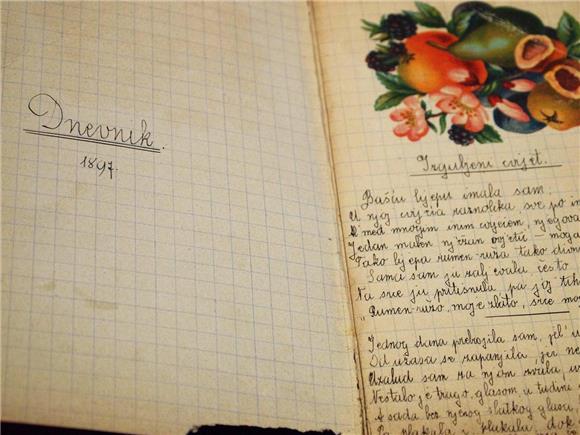 Dnevnik.
1897.
Izgubljeni cvijet.
Bašću lijepu imala sam.
U njoj cvijeća raznolika sve po
A međ mnogim inim cvijećem,
Jedan malen nježan cvjetić —
Tako lijepa rumen-ruža tako
Sama sam ju zalijevala često
Na srce ju pritisnula pa joj
„Rumen-ružo, moje zlato, srce
Jednog dana prebojila sam,
Od užasa se zapanjila, jer
Uzalud sam za njom zvala,
Nestalo je trago, glasom, u tudjini
A sada bez njenog slatkog glasa,
plakala i plakala dok